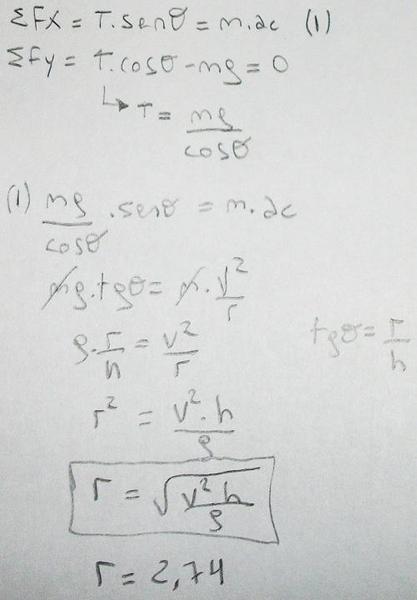 ΣFx = T.senθ = m.ac (1)
ΣFy = T.cosθ - mg = 0
↳ T = mg/cosθ
(1) mg/cosθ . senθ = m.ac
mg.tgθ = m.v²/r
g.r/h = v²/r tgθ = r/h
r² = v².h/g
r = √(v²h/g)
r = 2,74